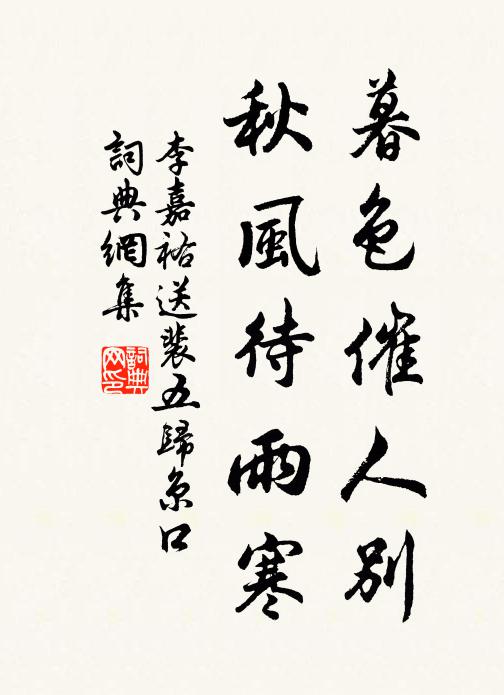 暮色催人别
秋風待雨寒
李嘉祐送裴五歸京口
詞典網集
詞典网印